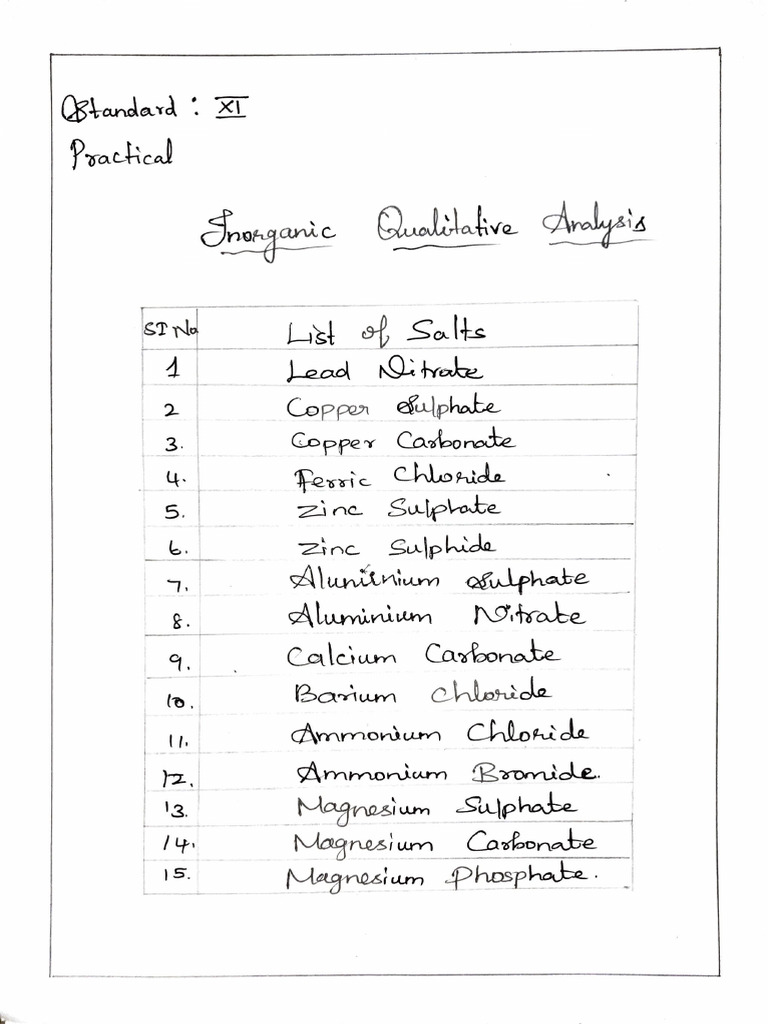 Standard : XI
Practical
Inorganic Qualitative Analysis
SI No List of Salts
1 Lead Nitrate
2 Copper Sulphate
3. Copper Carbonate
4. Ferric Chloride
5. Zinc Sulphate
6. Zinc Sulphide
7. Aluminium Sulphate
8. Aluminium Nitrate
9. Calcium Carbonate
10. Barium Chloride
11. Ammonium Chloride
12. Ammonium Bromide.
13. Magnesium Sulphate
14. Magnesium Carbonate
15. Magnesium Phosphate.